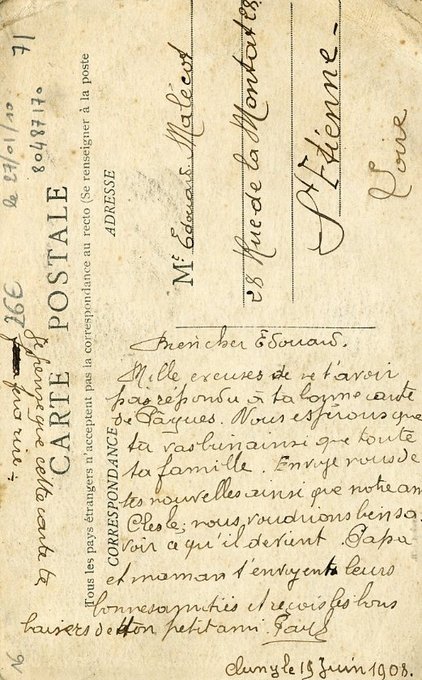 CARTE POSTALE
Tous les pays étrangers n'acceptent pas la correspondance au recto (Se renseigner à la poste
CORRESPONDANCE
ADRESSE
Mr Edouard Malécot
28 Rue de la Montat 28
St Etienne
Loire
Bien cher Edouard.
Mille excuses de ne t'avoir
pas répondu à ta bonne carte
de Pâques. Nous espérons que
tu vas bien ainsi que toute
ta famille. Envoye nous de
tes nouvelles ainsi que notre am
nous voudrions bien sa
voir ce qu'il devient. Papa
et maman t'envoyent leurs
bonnes amitiés et reçois les bons
baisers de ton petit ami. Paul
Cluny le 19 Juin 1908.
Je pense que cette carte te
fera rire
80487170